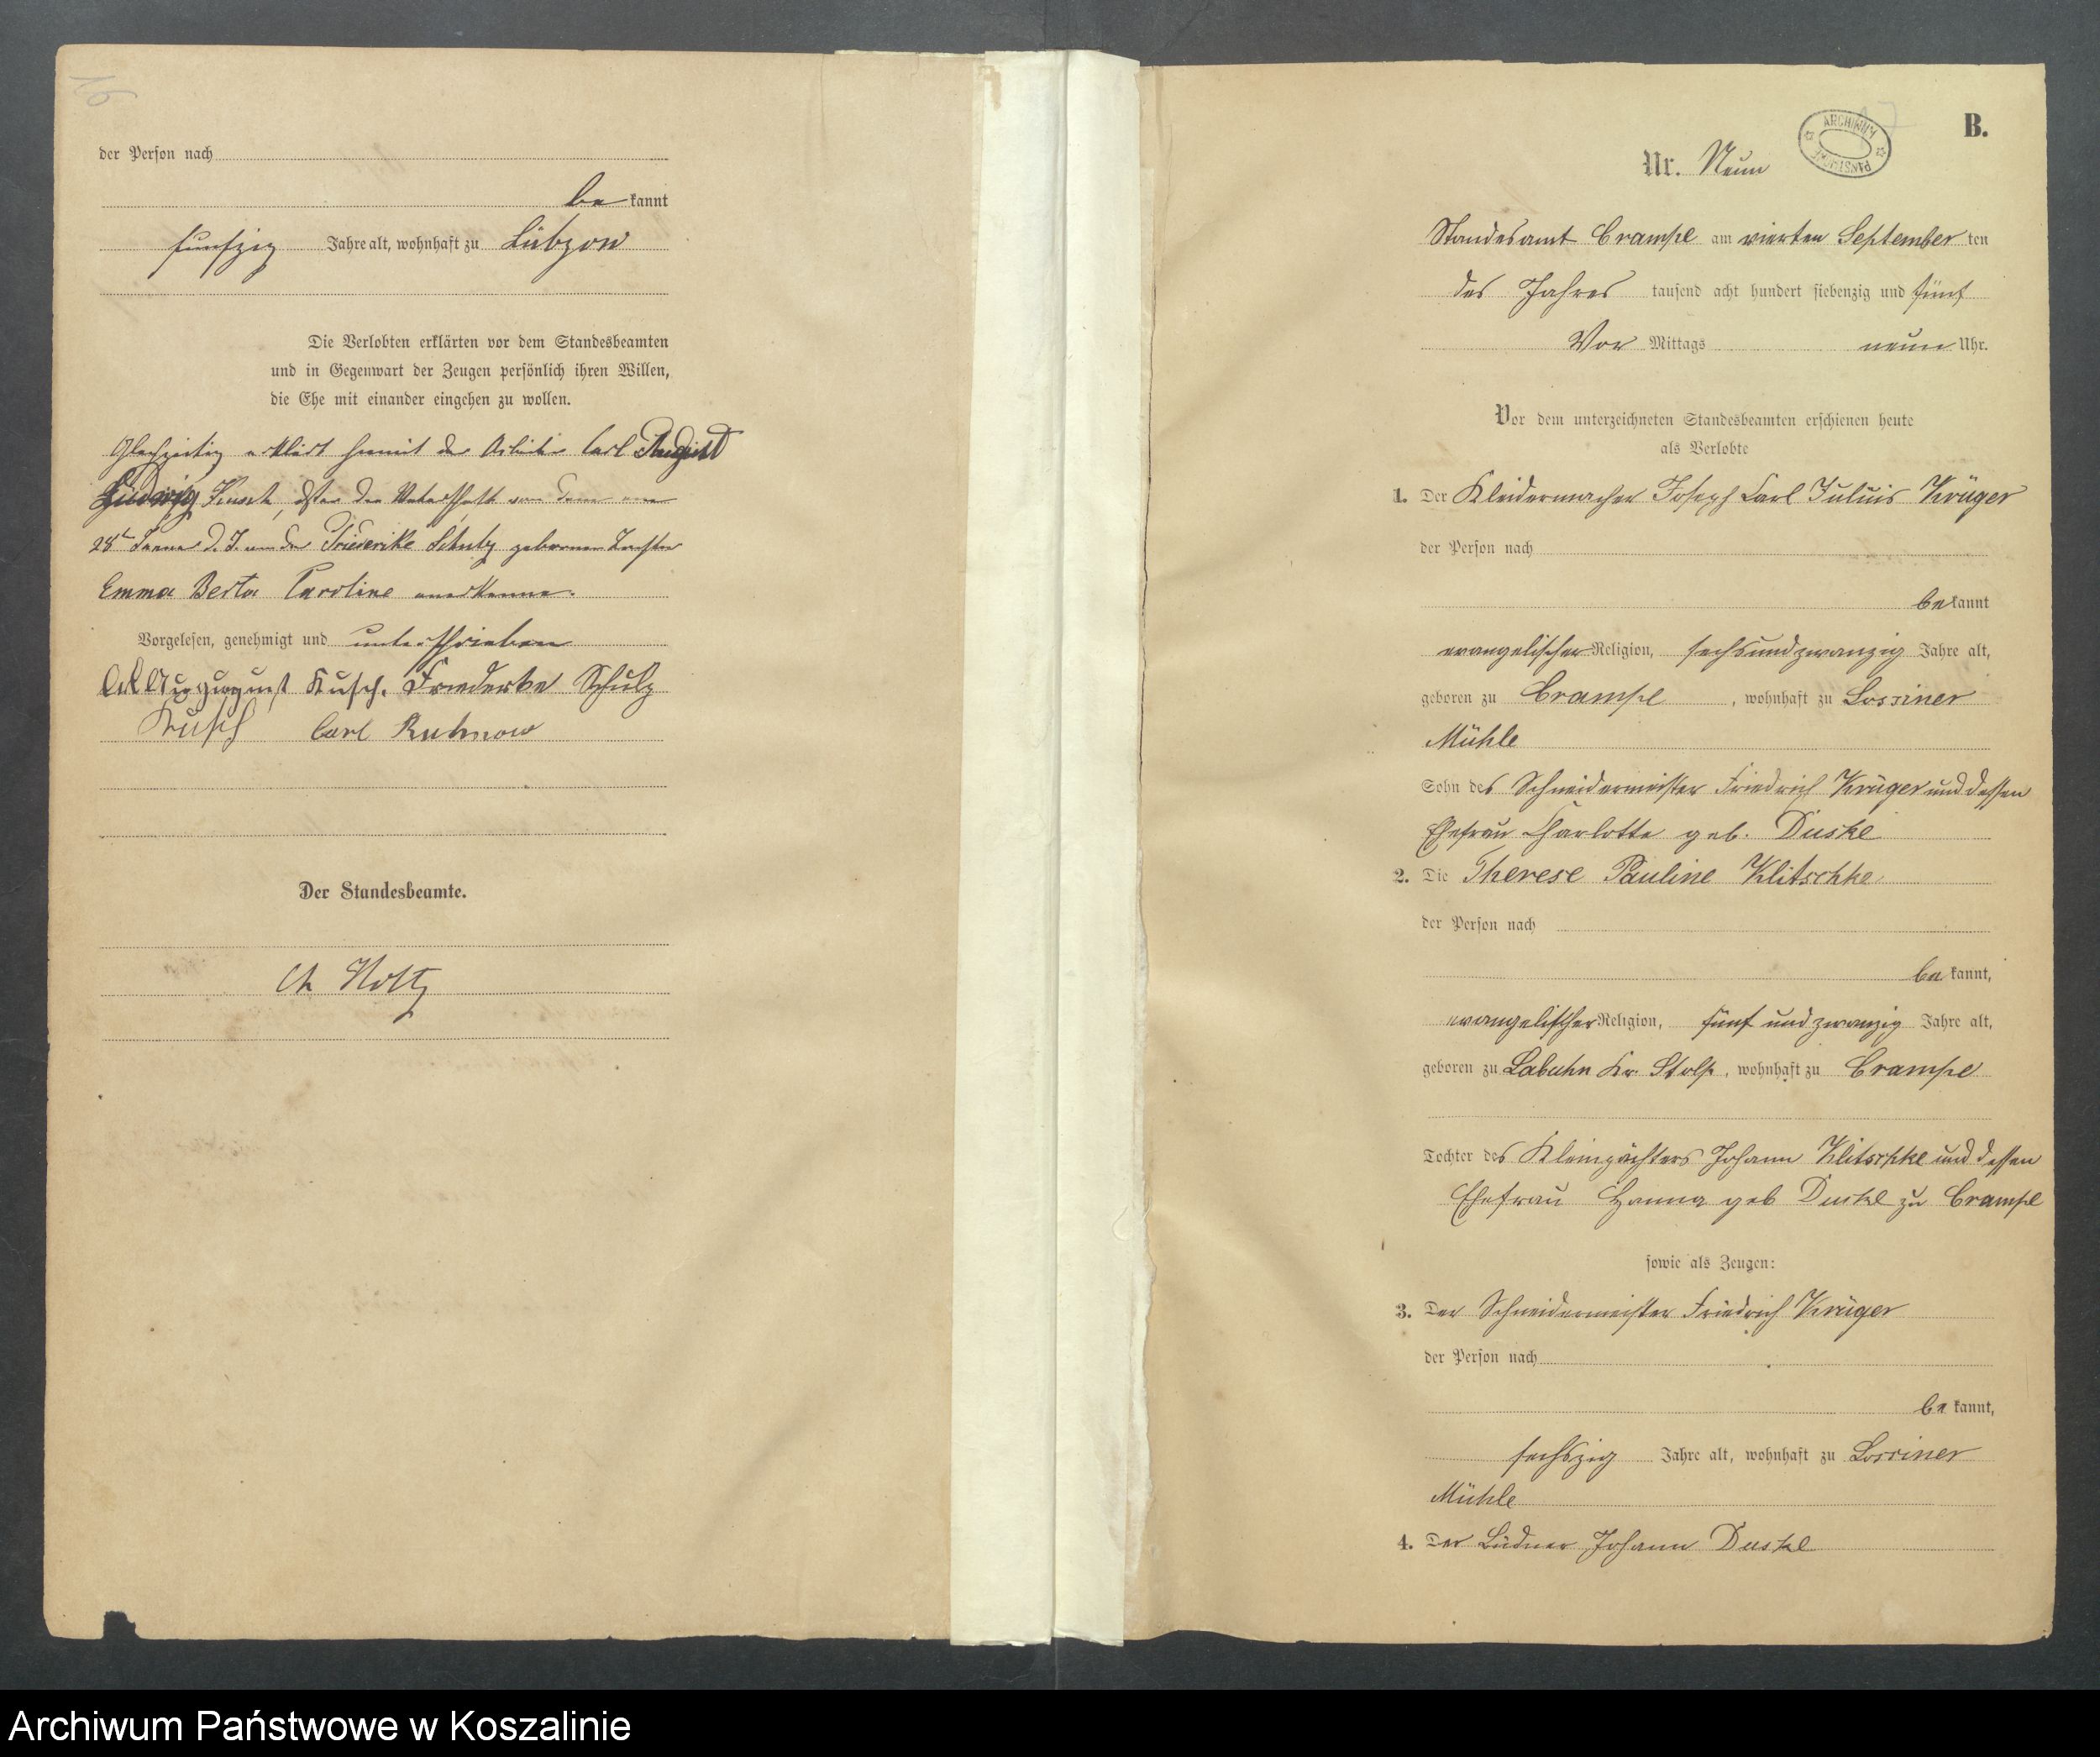 der Person nach
be kannt
funfzig Jahre alt, wohnhaft zu Lübzow
Die Verlobten erklärten vor dem Standesbeamten
und in Gegenwart der Zeugen persönlich ihren Willen,
die Ehe mit einander eingehen zu wollen.
Gleichzeitig erklärt hiermit der Arbeiter Carl August
Ludwig Kusch, daß er die Vaterschaft von dem am
28t d. J. von der Friederike Schulz geborenen Tochter
Emma Berta Caroline anerkenne.
Vorgelesen, genehmigt und unterschrieben
August Kusch. Friederke Schulz
Kusch Carl Ruhnow
Der Standesbeamte.
Holtz
B.
ARCHIWUM PAŃSTWOWE
Nr. Neun
Standesamt Crampe am vierten September ten
des Jahres tausend acht hundert siebenzig und fünf
Vor Mittags neun Uhr.
Vor dem unterzeichneten Standesbeamten erschienen heute
als Verlobte
1. Der Kleidermacher Joseph Carl Julius Krüger
der Person nach
be kannt
evangelischer Religion, sechsundzwanzig Jahre alt,
geboren zu Crampe, wohnhaft zu Lossiner
Mühle
Sohn des Schneidermeister Friedrich Krüger und dessen
Ehefrau Charlotte geb. Duske
2. Die Therese Pauline Klitschke
der Person nach
be kannt,
evangelischer Religion, fünf und zwanzig Jahre alt,
geboren zu Labuhn Kr. Stolp, wohnhaft zu Crampe
Tochter des Kleinpächters Johann Klitschke und dessen
Ehefrau Hanna geb Duske zu Crampe
sowie als Zeugen:
3. Der Schneidermeister Friedrich Krüger
der Person nach
be kannt,
sechszig Jahre alt, wohnhaft zu Lossiner
Mühle
4. Der Büdner Johann Duske
Archiwum Państwowe w Koszalinie